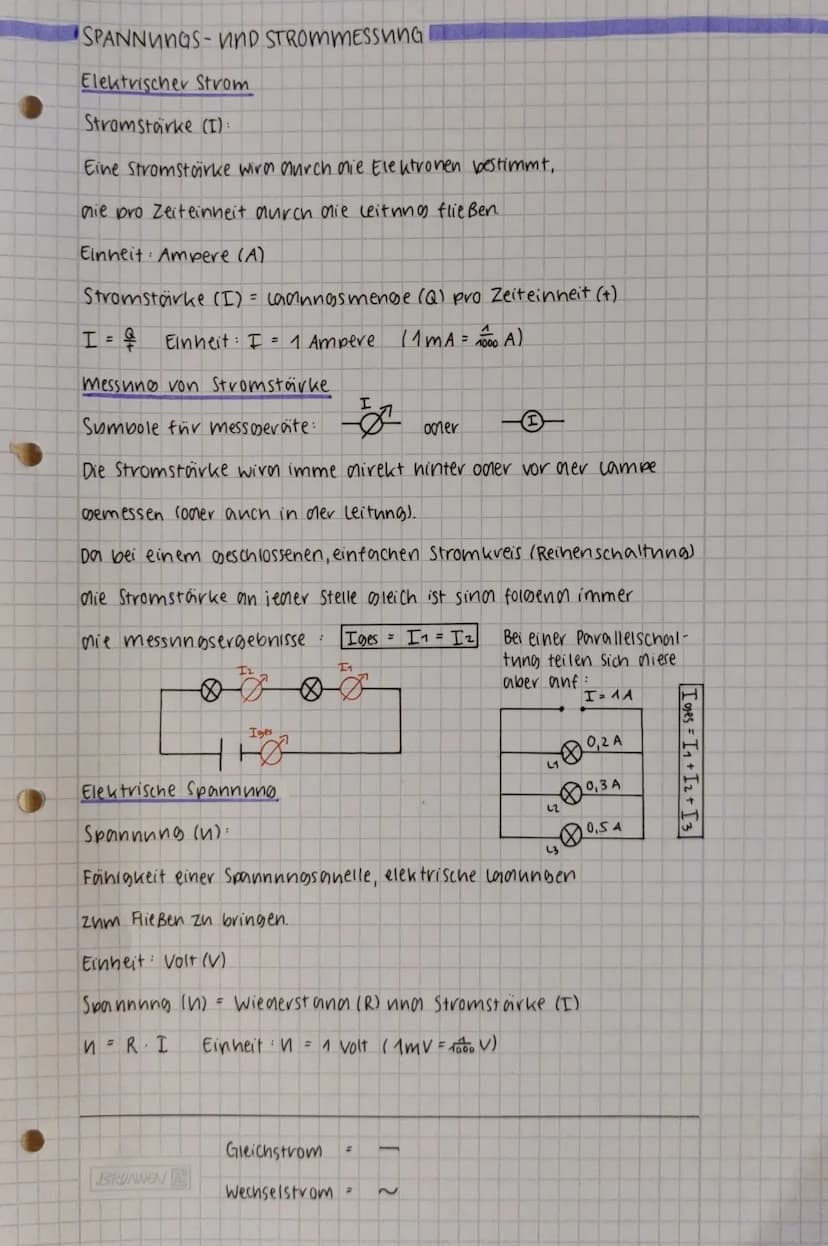 SPANNUNGS- UND STROMMESSUNG
Elektrischer Strom
Stromstärke (I):
Eine Stromstärke wird durch die Elektronen bestimmt,
die pro Zeiteinheit durch die Leitung fließen.
Einheit: Ampere (A)
Stromstärke (I) = Ladungsmenge (Q) pro Zeiteinheit (t)
I = Q/t Einheit: I = 1 Ampere (1mA = 1/1000 A)
Messung von Stromstärke
Symbole für Messgeräte: I oder I
Die Stromstärke wird imme direkt hinter oder vor der Lampe
gemessen (oder auch in der Leitung).
Da bei einem geschlossenen, einfachen Stromkreis (Reihenschaltung)
die Stromstärke an jeder Stelle gleich ist sind folgend immer
die Messungsergebnisse: Iges = I1 = I2
Bei einer Parallelschal-
tung teilen sich diese
aber auf:
I2 I1
Iges
I = 1A
0,2 A
L1
0,3 A
L2
0,5 A
L3
Iges = I1 + I2 + I3
Elektrische Spannung
Spannung (U):
Fähigkeit einer Spannnungsquelle, elektrische Ladungen
zum Fließen zu bringen.
Einheit: Volt (V)
Spannung (U) = Wiederstand (R) und Stromstärke (I)
U = R · I Einheit: U = 1 Volt (1mV = 1/1000 V)
Gleichstrom = —
Wechselstrom = ~
BRUNNEN